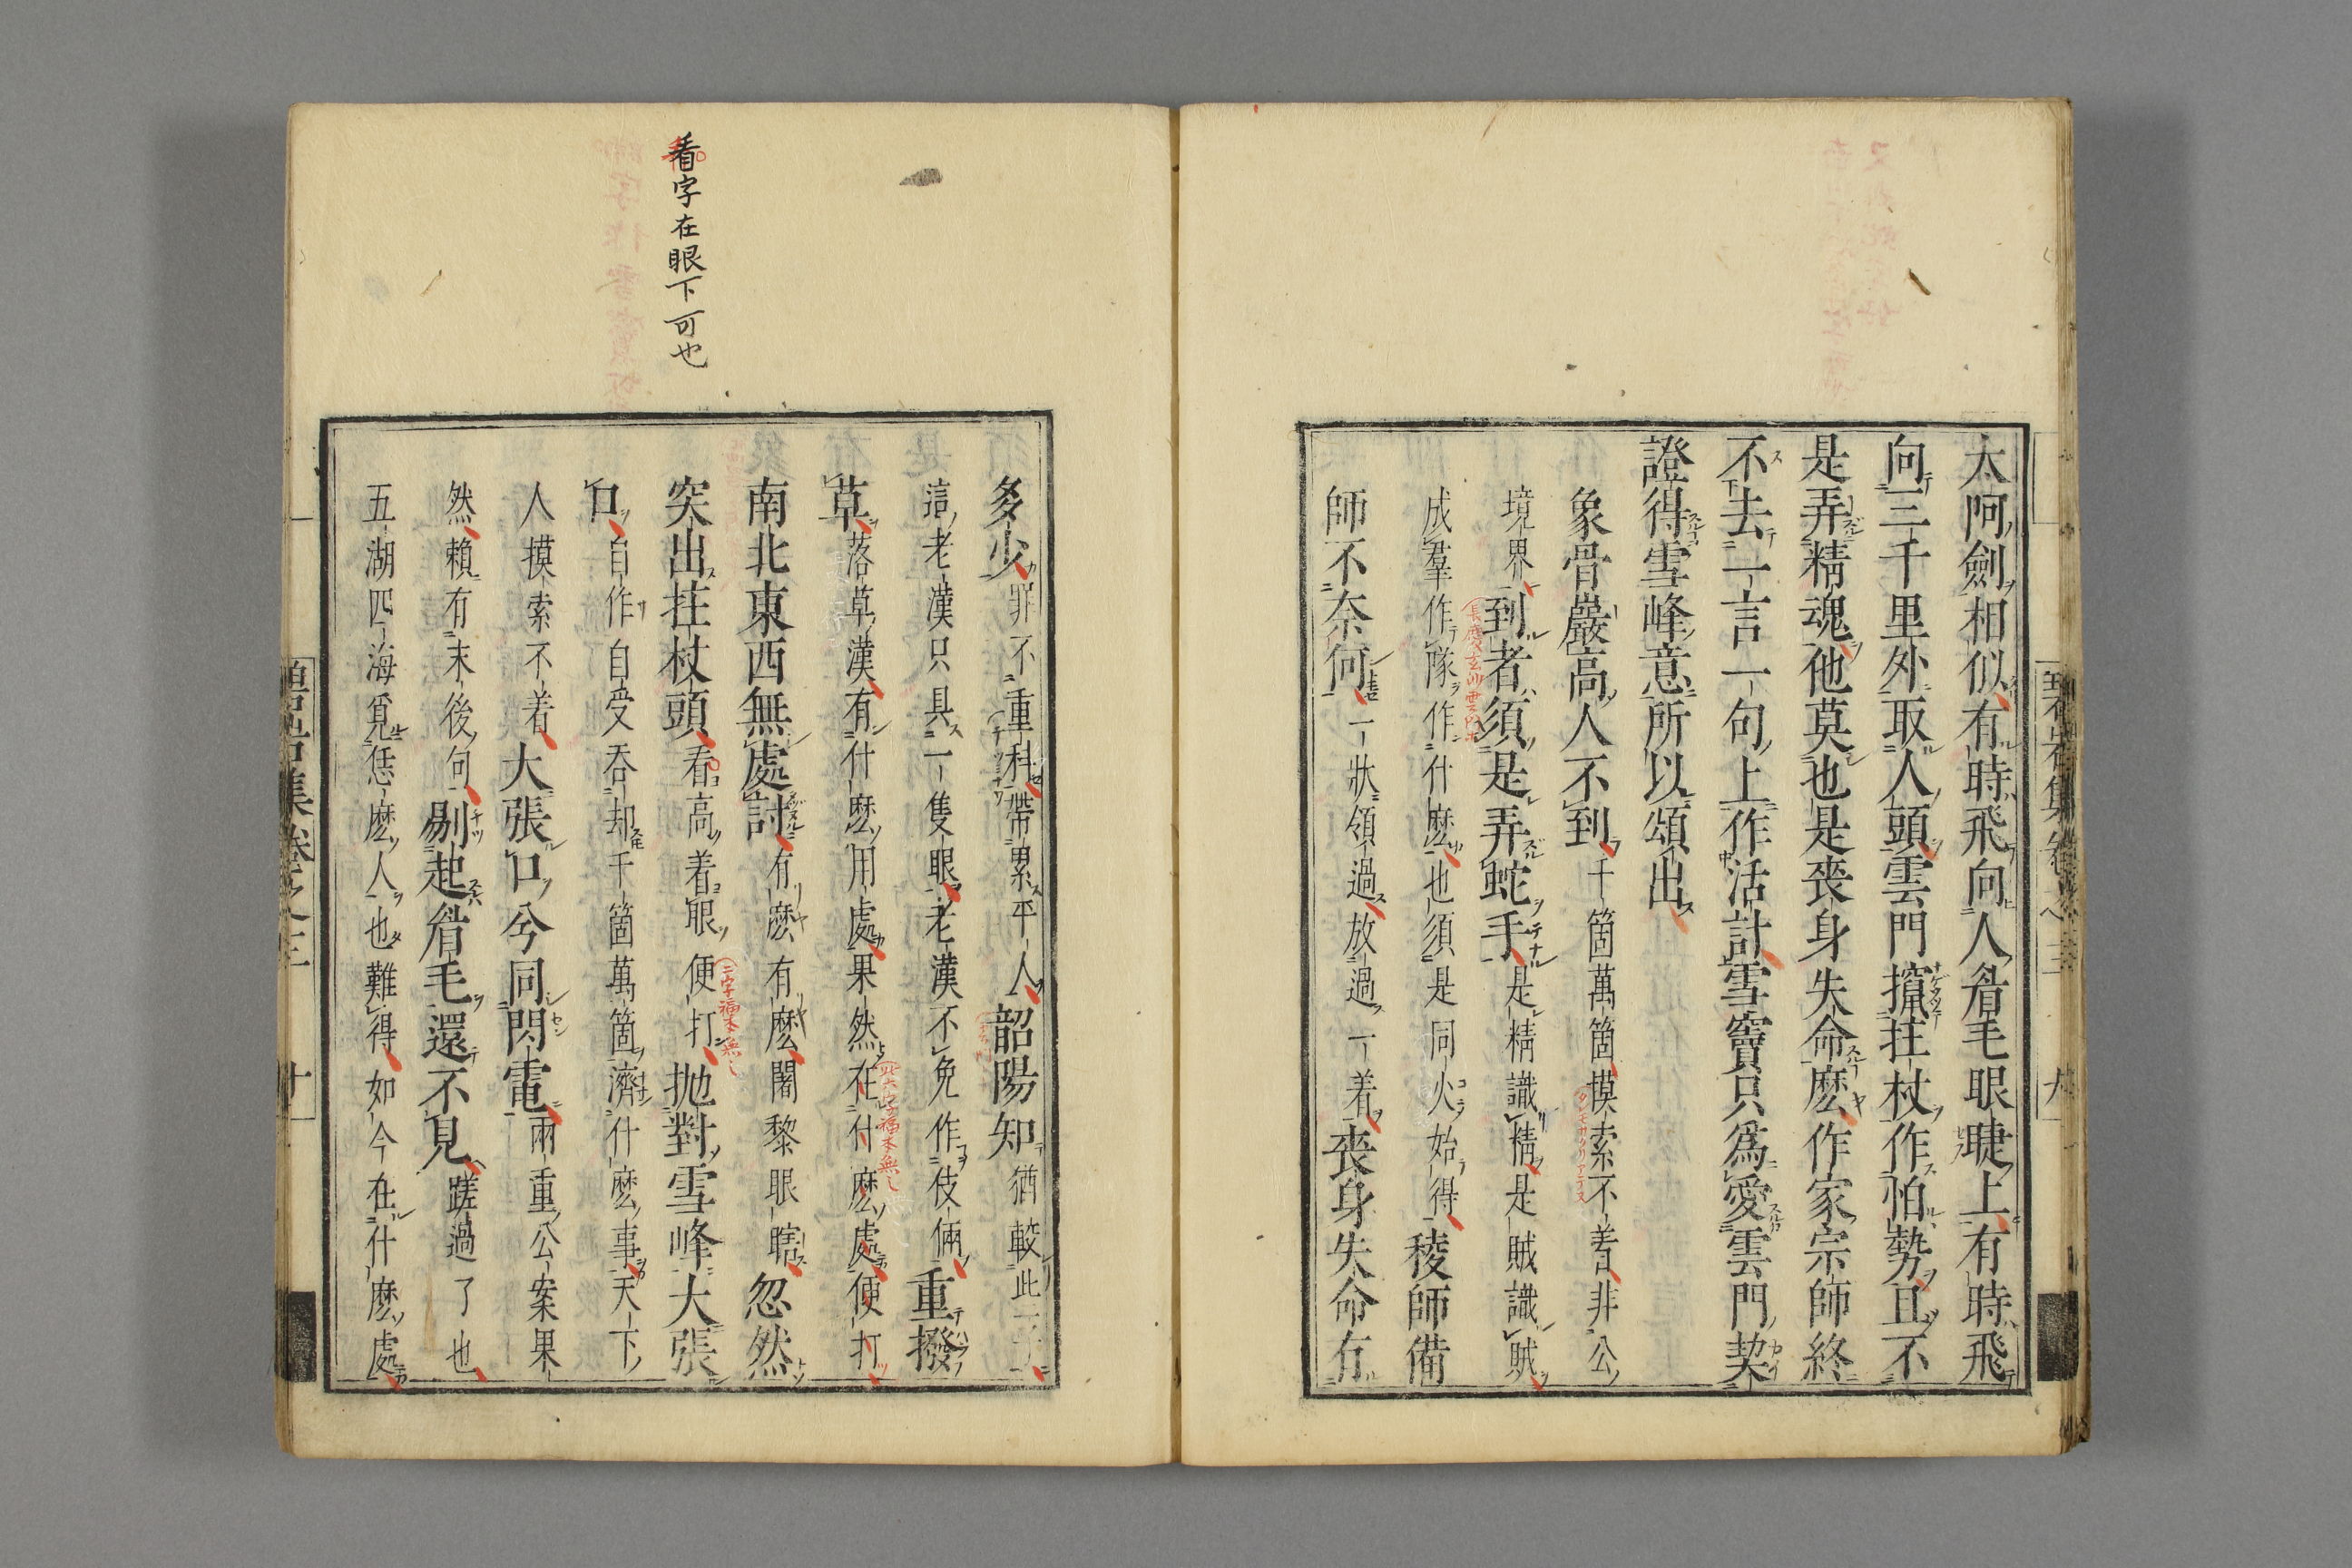 太阿劍相似有時飛向人眉毛眼睫上有時飛
向三千里外取人頭雲門攛拄杖作怕勢且不
是弄精魂他莫也是喪身失命麽作家宗師終
不去一言一句上作活計雪竇只爲愛雲門契
證得雪峰意所以頌出
象骨巖高人不到千箇萬箇摸索不著非公
境界到者須是弄蛇手是精識精是賊識賊
成羣作隊作什麽也須是同火始得稜師備
師不奈何一狀領過放過一着喪身失命有
多少罪不重科帶累平人韶陽知猶較此子
這老漢只具一隻眼老漢不免作伎倆重撥
草落草漢有什麽用處果然在什麽處便打
南北東西無處討有麽有麽闍黎眼瞎忽然
突出拄杖頭看高着眼便打抛對雪峰大張
口自作自受吞却千箇萬箇濟什麽事天下
人摸索不着大張口兮同閃電兩重公案果
然賴有末後句剔起眉毛還不見蹉過了也
五湖四海覓恁麽人也難得如今在什麽處
看字在眼下可也
二字福本無し
此六字福本無し
碧岩集卷之三
十
九